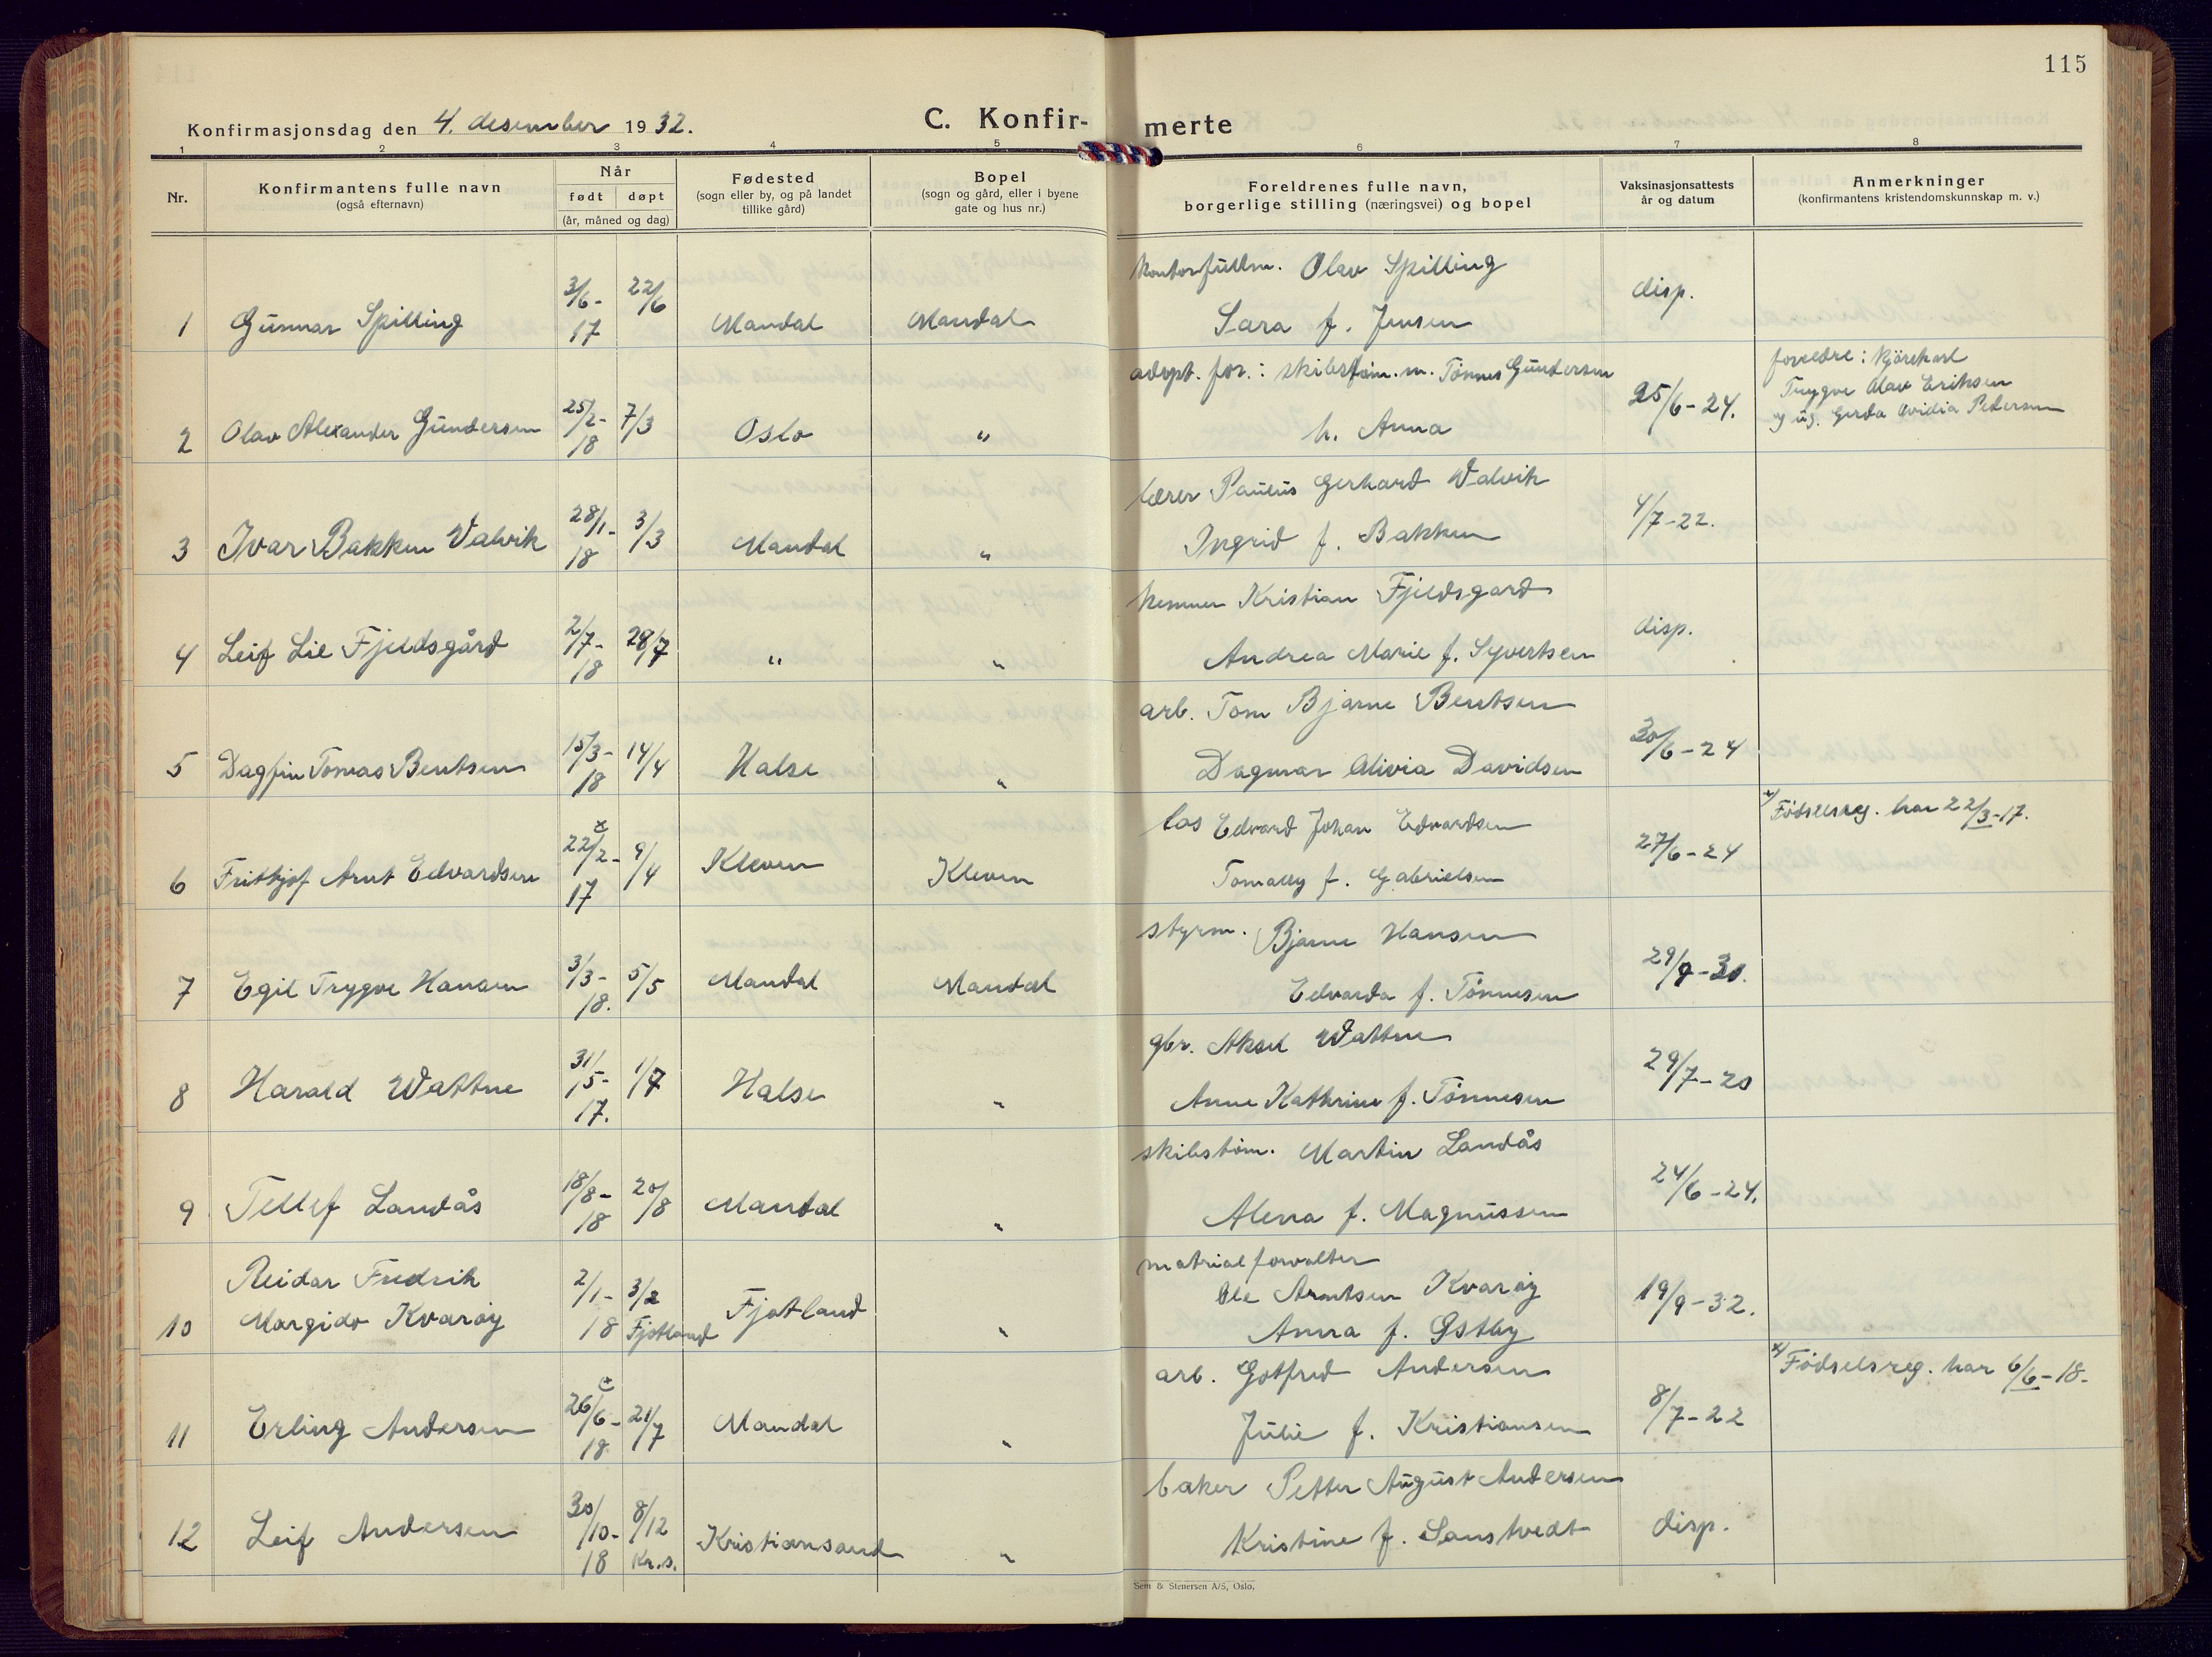 115
Konfirmasjonsdag den 4. desember 1932. C. Konfirmerte
1 2 3 4 5 6 7 8
Nr. Konfirmantens fulle navn (også efternavn) Når født døpt (år, måned og dag) Fødested (sogn eller by, og på landet tillike gård) Bopel (sogn og gård, eller i byene gate og hus nr.) Foreldrenes fulle navn, borgerlige stilling (næringsvei) og bopel Vaksinasjonsattests år og datum Anmerkninger (konfirmantens kristendomskunnskap m. v.)
1 Gunnar Spilling 3/6-17 22/6 Mandal Mandal kontorfullm. Olav Spilling
Sara f. Jensen disp.
2 Olav Alexander Gundersen 25/2-18 7/3 Oslo " adopt. for.: skibstøm.m. Tønnes Gundersen
h. Anna 25/6-24. foreldre: kjørekarl
Trygve Olav Eriksen
og ug. Gerda Ovidia Pedersen
3 Ivar Bakken Valvik 28/1-18 3/3 Mandal " lærer Paulus Gerhard Valvik
Ingrid f. Bakken 4/7-22.
4 Leif Lie Fjeldsgård 2/7-18 28/7 " " kemner Kristian Fjeldsgard
Andrea Marie f. Syvertsen disp.
5 Dagfin Tomas Bentsen 15/3-18 14/4 Halse " arb. Tom Bjarne Bentsen
Dagmar Olivia Davidsen 30/6-24
6 Fritkjof Arnt Edvardsen 22/2-17 x 9/4 Kleven Kleven los Edvard Johan Edvardsen
Tomally f. Gabrielsen 27/6-24 x) Fødselsreg. har 22/3-17.
7 Egil Trygve Hansen 3/3-18. 5/5 Mandal Mandal styrm. Bjarne Hansen
Edvarda f. Tønnesen 29/9-30.
8 Harald Wattne 31/5-17. 1/7 Halse " gbr. Aksel Wattne
Anne Kathrine f. Tønnesen 29/7-20
9 Tellef Landås 18/8-18 20/8 Mandal " skibstøm. Martin Landås
Alena f. Magnussen 24/6-24.
10 Reidar Fredrik
Margido Kvarøy 2/1-18 3/2 Fjotland Fjotland " matrialforvalter
Ole Arntsen Kvarøy
Anna f. Østby 19/9-32.
11 Erling Andersen 26/6-18 x 21/7 Mandal " arb. Gotfred Andersen
Julie f. Kristiansen 8/7-22 x) Fødselsreg. har 6/6-18-
12 Leif Andersen 30/10-18 8/12 Kr.s. Kristiansand " baker Petter August Andersen
Kristine f. disp.
Sem & Stenersen A/S, Oslo.